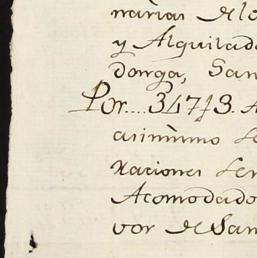 narias de lo
y Alquilad
donga, San
Por.... 34713. A
asimismo se
naciones se
Acomodado
vor de San